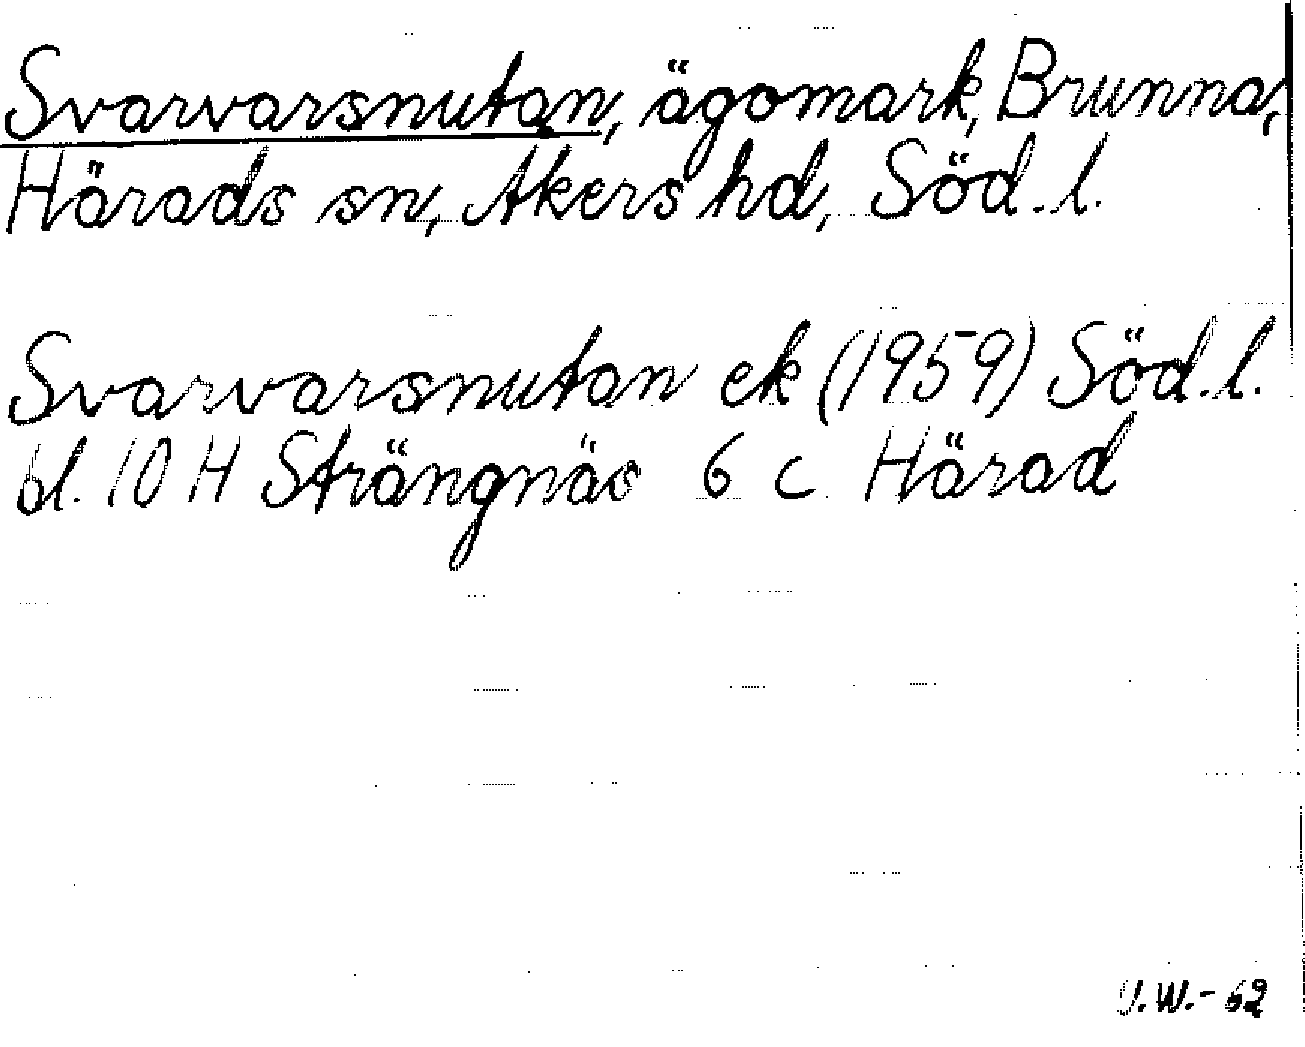 Svarvarsnutan, ägomark, Brunna,
Härads sn, Åkers hd, Söd. l.
Svarvarsnutan ek (1959) Söd. l.
bl. 10 H Strängnäs 6 c Härad
U.W.-62